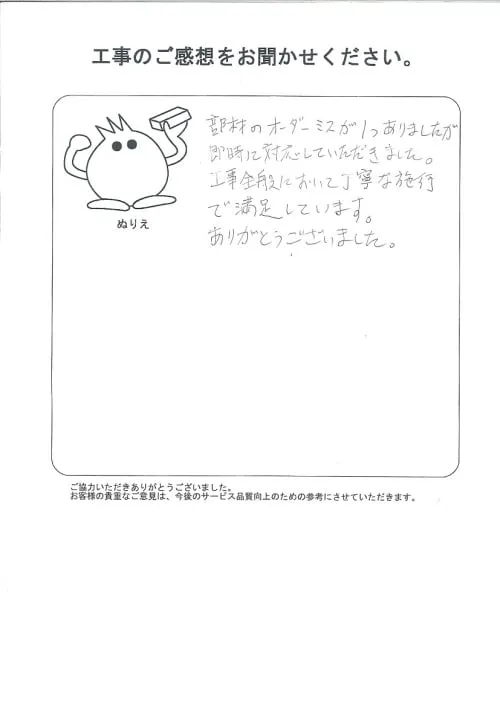 工事のご感想をお聞かせください。
部材のオーダーミスが1つありましたが
即時に対応していただきました。
工事全般において丁寧な施行
で満足しています。
ありがとうございました。
ぬりえ
ご協力いただきありがとうございました。
お客様の貴重なご意見は、今後のサービス品質向上のための参考にさせていただきます。